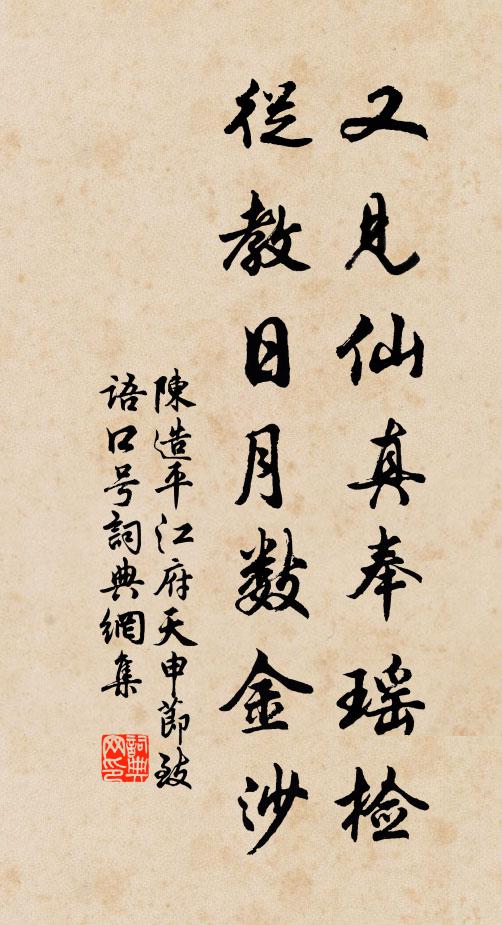 又见仙真奉瑶检
從教日月数金沙
陳造平江府天申節致
语口号詞典網集
詞典
网印